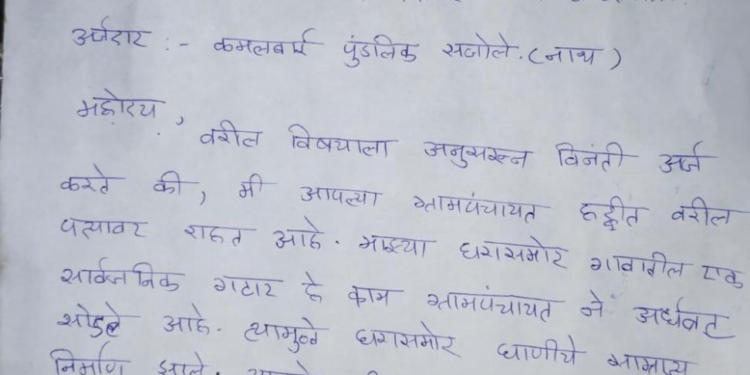 अर्जदार :- कमलबाई पुंडलिक सजोले. (नाथ)
महोदय,
वरील विषयाला अनुसरून विनंती अर्ज
करते की, मी आपल्या ग्रामपंचायत हद्दीत वरील
पत्यावर राहत आहे. माझ्या घरासमोर गावातील एक
सार्वजनिक गटार हे काम ग्रामपंचायत ने अर्धवट
सोडले आहे. त्यामुळे घरासमोर घाणीचे साम्राज्य
निर्माण झाले.